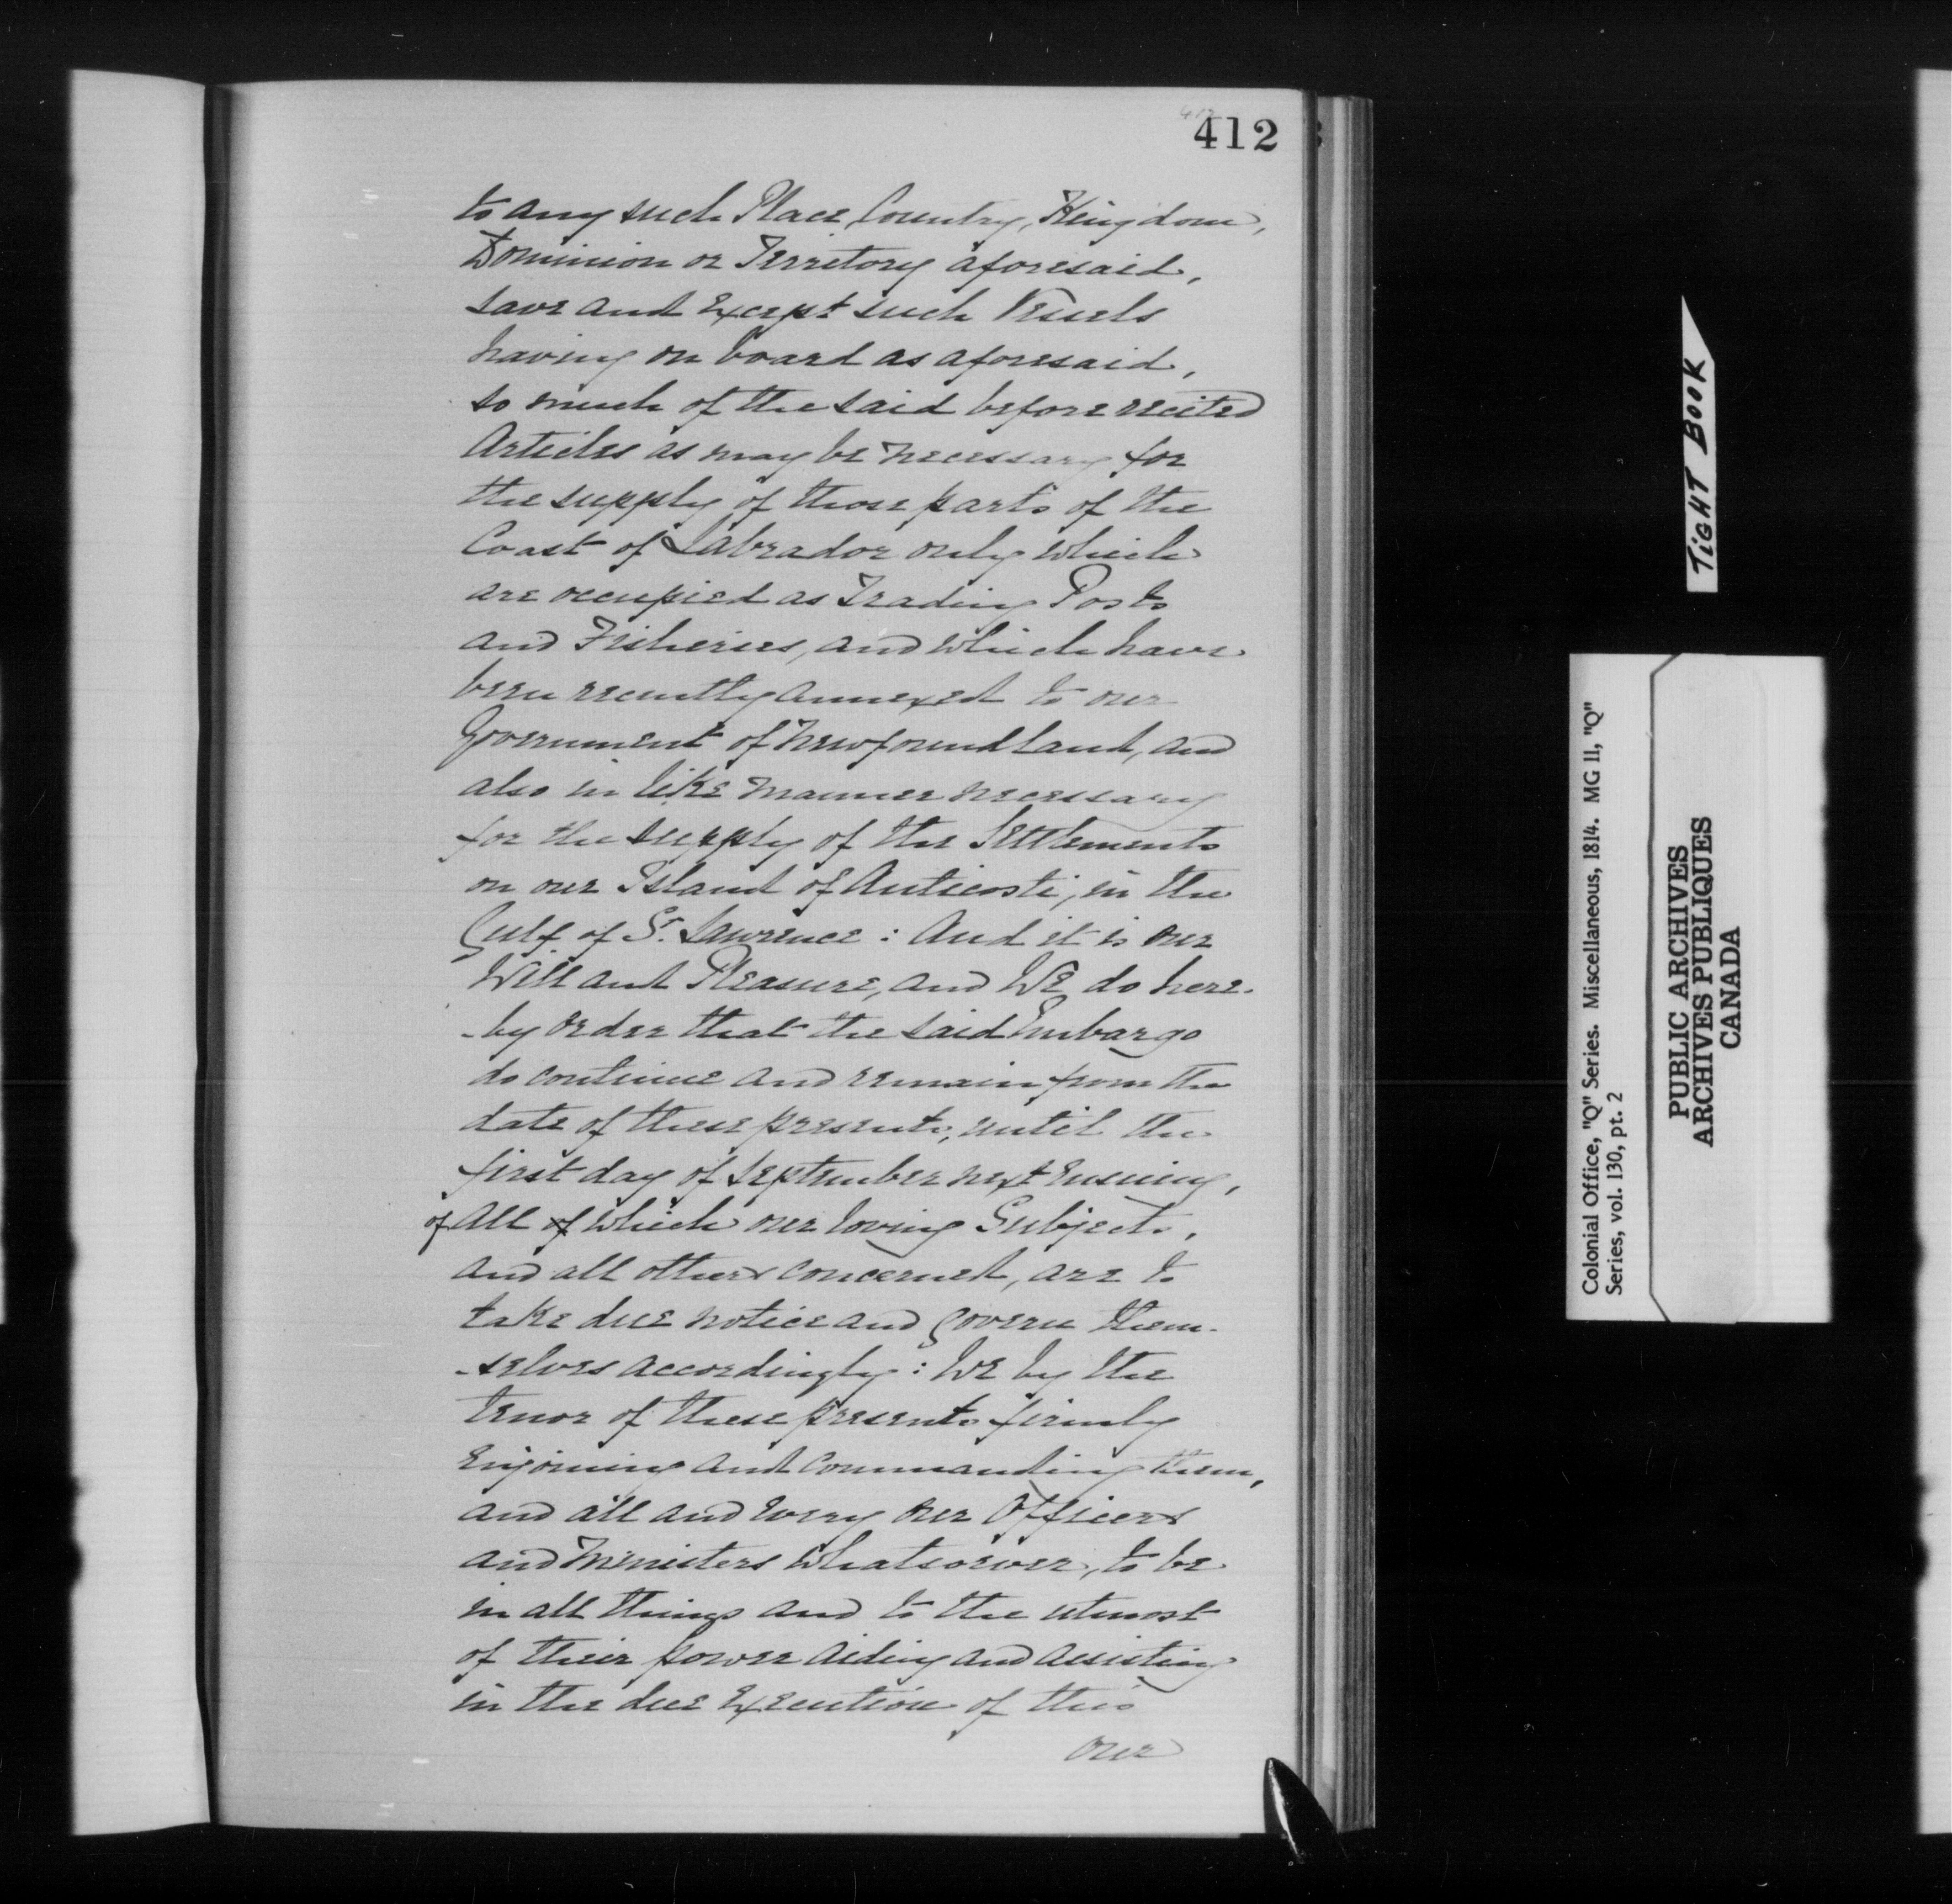 412
to any such Place, Country, Kingdom,
Dominion or Territory aforesaid,
save and Except such Vessels
having on board as aforesaid,
so much of the said before recited
Articles as may be necessary for
the supply of those parts of the
Coast of Labrador only which
are occupied as Trading Posts
and Fisheries, and which have
been recently annexed to our
Government of Newfoundland, and
also in like manner necessary
for the supply of the Settlements
on our Island of Anticosti, in the
Gulf of St. Lawrence : And it is our
Will and Pleasure, and WE do here-
-by order that the said Embargo
do continue and remain from the
date of these presents, until the
first day of September next Ensuing,
of All of which our loving Subjects,
and all others concerned, are to
take due notice and govern them-
-selves accordingly : WE by the
tenor of these presents firmly
Enjoining and Commanding them,
and all and Every our Officers
and Ministers whatsoever, to be
in all things and to the utmost
of their power aiding and assisting
in the due Execution of this
our
TIGHT BOOK
Colonial Office, "Q" Series. Miscellaneous, 1814. MG 11, "Q"
Series, vol. 130, pt. 2
PUBLIC ARCHIVES
ARCHIVES PUBLIQUES
CANADA